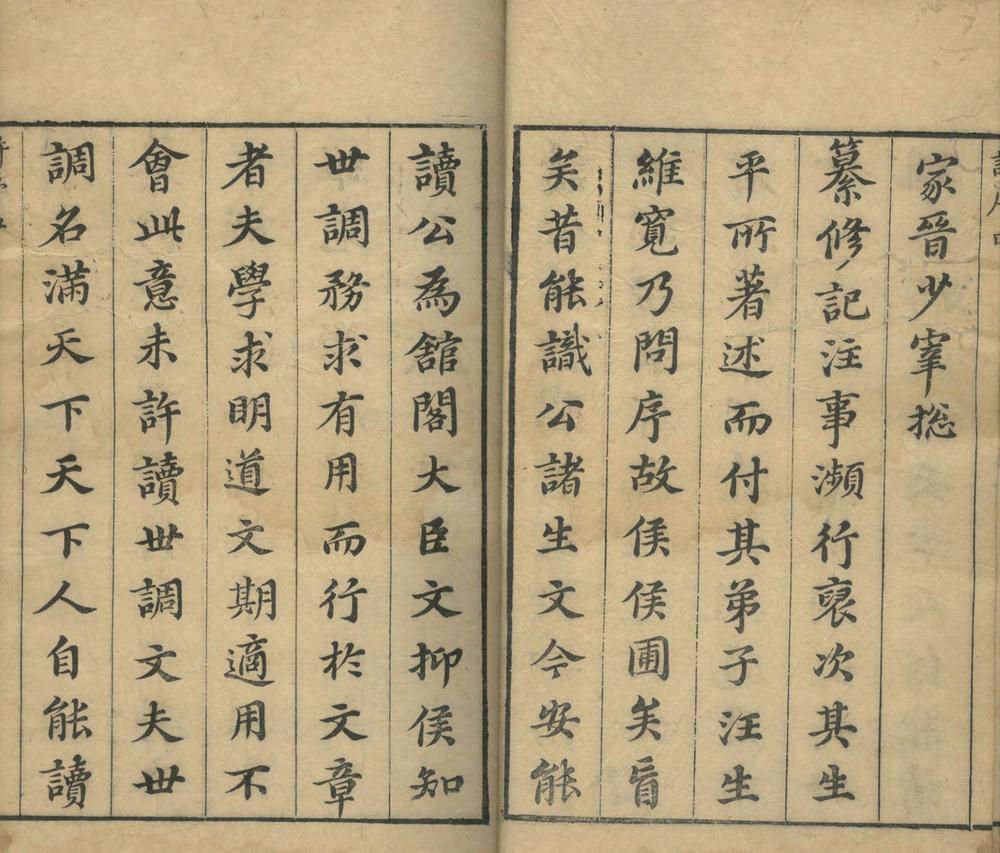 家晉少宰揔
纂修記注事瀕行裒次其生
平所著述而付其弟子汪生
維寬乃問序故侯侯圃矣盲
矣昔能識公諸生文今安能
讀公為舘閣大臣文抑侯知
世調務求有用而行於文章
者夫學求明道文期適用不
會此意未許讀世調文夫世
調名滿天下天下人自能讀